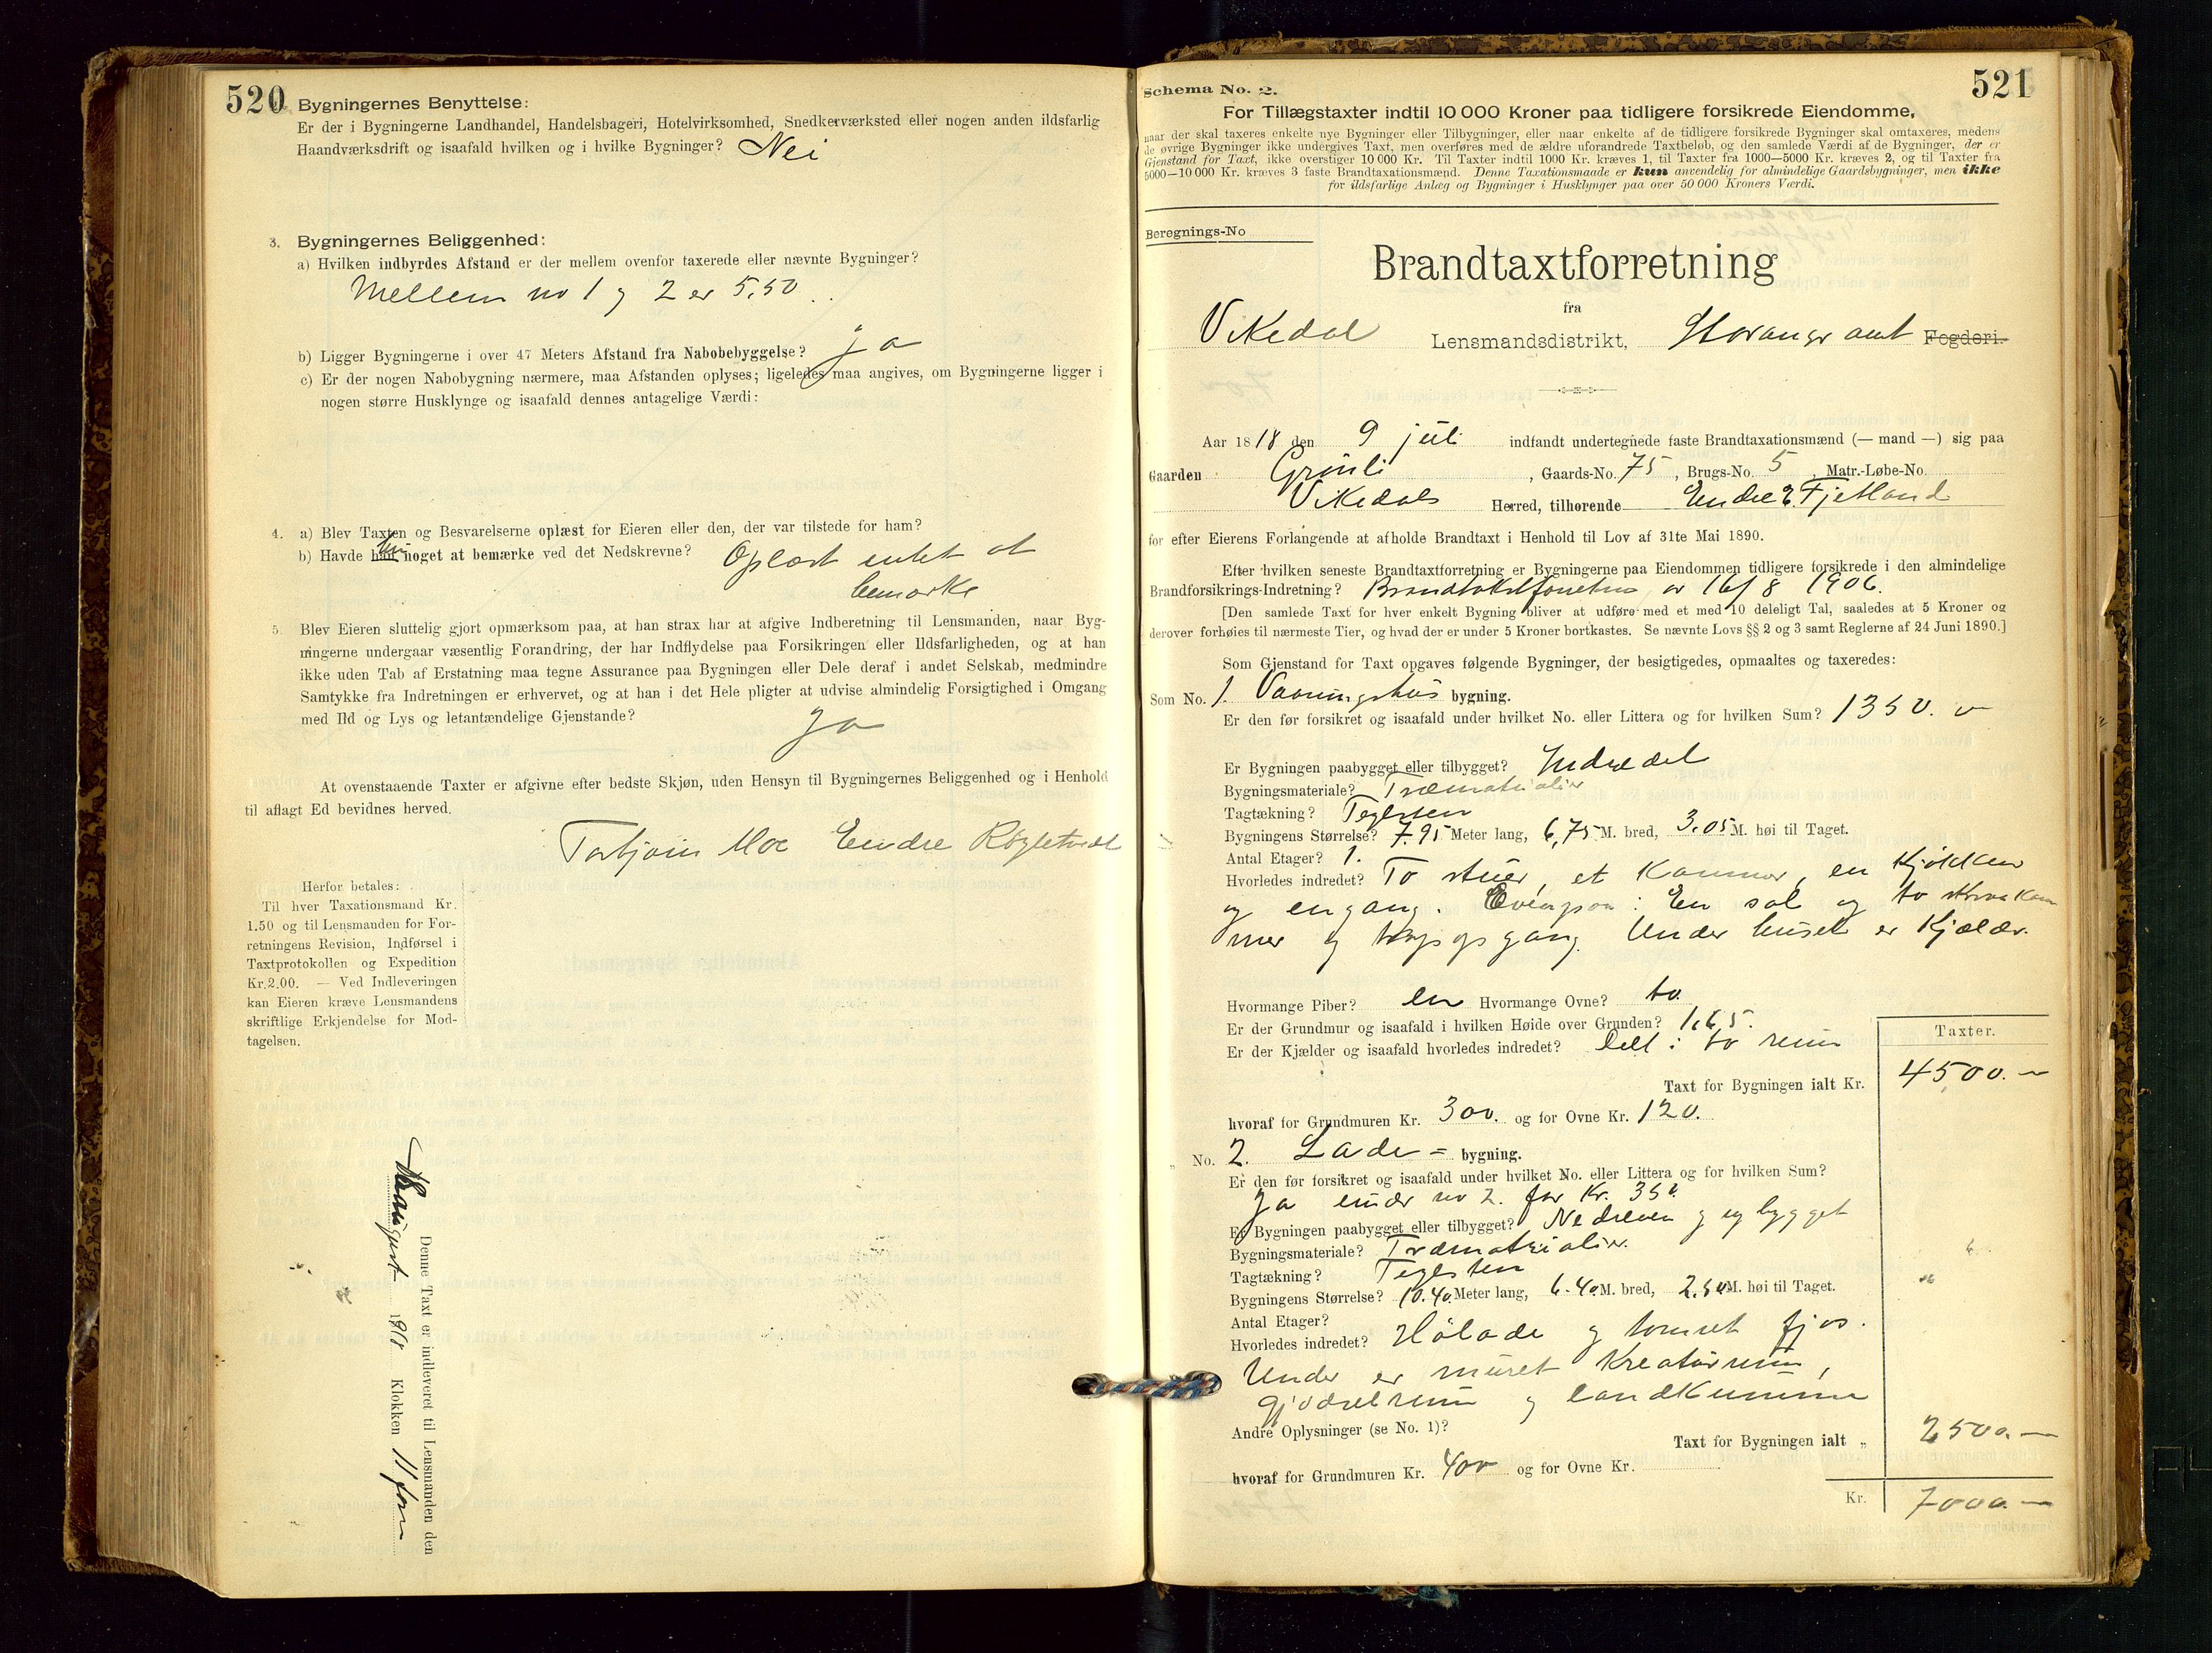 520
Bygningernes Benyttelse:
Er der i Bygningerne Landhandel, Handelsbageri, Hotelvirksomhed, Snedkerværksted eller nogen anden ildsfarlig
Haandværksdrift og isaafald hvilken og i hvilke Bygninger? Nei
3. Bygningernes Beliggenhed:
a) Hvilken indbyrdes Afstand er der mellem ovenfor taxerede eller nævnte Bygninger?
Mellem no 1 og 2 er 5,50.
b) Ligger Bygningerne i over 47 Meters Afstand fra Nabobebyggelse? ja
c) Er der nogen Nabobygning nærmere, maa Afstanden oplyses; ligeledes maa angives, om Bygningerne ligger i
nogen større Husklynge og isaafald dennes antagelige Værdi:
4. a) Blev Taxten og Besvarelserne oplæst for Eieren eller den, der var tilstede for ham?
b) Havde han noget at bemærke ved det Nedskrevne? Oplæst intet at
bemærke
5. Blev Eieren sluttelig gjort opmærksom paa, at han strax har at afgive Indberetning til Lensmanden, naar Byg-
ningerne undergaar væsentlig Forandring, der har Indflydelse paa Forsikringen eller Ildsfarligheden, og at han
ikke uden Tab af Erstatning maa tegne Assurance paa Bygningen eller Dele deraf i andet Selskab, medmindre
Samtykke fra Indretningen er erhvervet, og at han i det Hele pligter at udvise almindelig Forsigtighed i Omgang
med Ild og Lys og letantændelige Gjenstande? Ja
At ovenstaaende Taxter er afgivne efter bedste Skjøn, uden Hensyn til Bygningernes Beliggenhed og i Henhold
til aflagt Ed bevidnes herved.
Torbjørn Moe Endre
Herfor betales:
Til hver Taxationsmand Kr.
1.50 og til Lensmanden for For-
retningens Revision, Indførsel i
Taxtprotokollen og Expedition
Kr. 2.00. — Ved Indleveringen
kan Eieren kræve Lensmandens
skriftlige Erkjendelse for Mod-
tagelsen.
Denne Taxt er indleveret til Lensmanden den
August 1918 Klokken 11 form
521
Schema No. 2.
For Tillægstaxter indtil 10 000 Kroner paa tidligere forsikrede Eiendomme,
naar der skal taxeres enkelte nye Bygninger eller Tilbygninger, eller naar enkelte af de tidligere forsikrede Bygninger skal omtaxeres, medens
de øvrige Bygninger ikke undergives Taxt, men overføres med de ældre uforandrede Taxtbeløb, og den samlede Værdi af de Bygninger, der er
Gjenstand for Taxt, ikke overstiger 10 000 Kr. Til Taxter indtil 1000 Kr. kræves 1, til Taxter fra 1000—5000 Kr. kræves 2, og til Taxter fra
5000—10 000 Kr. kræves 3 faste Brandtaxationsmænd. Denne Taxationsmaade er kun anvendelig for almindelige Gaardsbygninger, men ikke
for ildsfarlige Anlæg og Bygninger i Husklynger paa over 50 000 Kroners Værdi.
Beregnings-No
Brandtaxtforretning
fra
Vikedal Lensmandsdistrikt, Stavanger amt Fogderi.
Aar 1818 den 9 juli indfandt undertegnede faste Brandtaxationsmænd (— mand —) sig paa
Gaarden Grønli, Gaards-No. 75, Brugs-No. 5, Matr.-Løbe-No.
Vikedals Herred, tilhørende Endre E. Fjetland
for efter Eierens Forlangende at afholde Brandtaxt i Henhold til Lov af 31te Mai 1890.
Efter hvilken seneste Brandtaxtforretning er Bygningerne paa Eiendommen tidligere forsikrede i den almindelige
Brandforsikrings-Indretning? av 16/8 1906.
[Den samlede Taxt for hver enkelt Bygning bliver at udføre med et med 10 deleligt Tal, saaledes at 5 Kroner og
derover forhøies til nærmeste Tier, og hvad der er under 5 Kroner bortkastes. Se nævnte Lovs §§ 2 og 3 samt Reglerne af 24 Juni 1890.]
Som Gjenstand for Taxt opgaves følgende Bygninger, der besigtigedes, opmaaltes og taxeredes:
Som No. 1. Vaaningshus bygning.
Er den før forsikret og isaafald under hvilket No. eller Littera og for hvilken Sum? 1350.
Er Bygningen paabygget eller tilbygget? Indredet
Bygningsmateriale? Træmaterialier
Tagtækning? Teglsten
Bygningens Størrelse? 7.95 Meter lang, 6,75 M. bred, 3.05 M. høi til Taget.
Antal Etager? 1.
Hvorledes indredet? To stuer, et kammer, en kjøkken
og en gang. Ovenpaa: En sal og to
mer og gang. Under huset er Kjælder.
Hvormange Piber? en Hvormange Ovne? to.
Er der Grundmur og isaafald i hvilken Høide over Grunden? 1,65.
Er der Kjælder og isaafald hvorledes indredet? Delt i to rum
Taxter.
Taxt for Bygningen ialt Kr. 4500.—
hvoraf for Grundmuren Kr. 300. og for Ovne Kr. 120.
„ No. 2. Lade = bygning.
Er den før forsikret og isaafald under hvilket No. eller Littera og for hvilken Sum?
Ja under no 2. for Kr. 350
Er Bygningen paabygget eller tilbygget? Nedreven og ny bygget
Bygningsmateriale? Træmaterialier.
Tagtækning? Teglsten
Bygningens Størrelse? 10.40 Meter lang, 6.40 M. bred, 2.50 M. høi til Taget.
Antal Etager?
Hvorledes indredet? Hølade og tømret fjøs.
Under er muret Kreaturrum,
gjødselrum og landkumme
Andre Oplysninger (se No. 1)?
Taxt for Bygningen ialt „ 2500.—
hvoraf for Grundmuren Kr. 400 og for Ovne Kr.
Kr. 7000.—